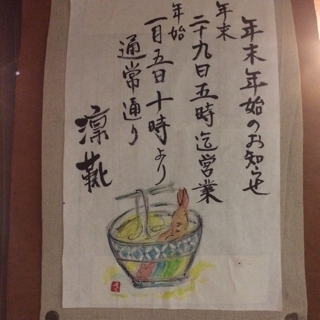 年末年始のお知らせ
年末
二十九日五時迄営業
年始
一月五日十時より
通常通り
凛靴